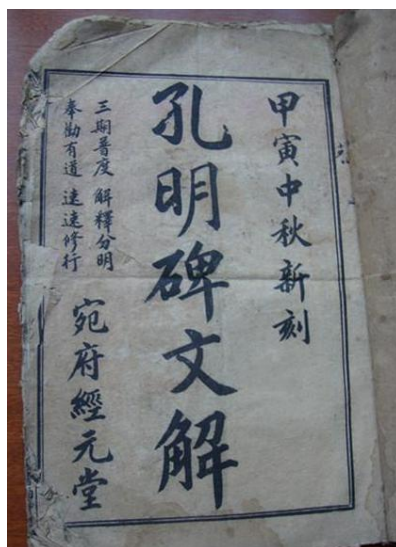 甲寅中秋新刻
孔明碑文解
三期普度 解釋分明
奉勸有道 速速修行
宛府經元堂